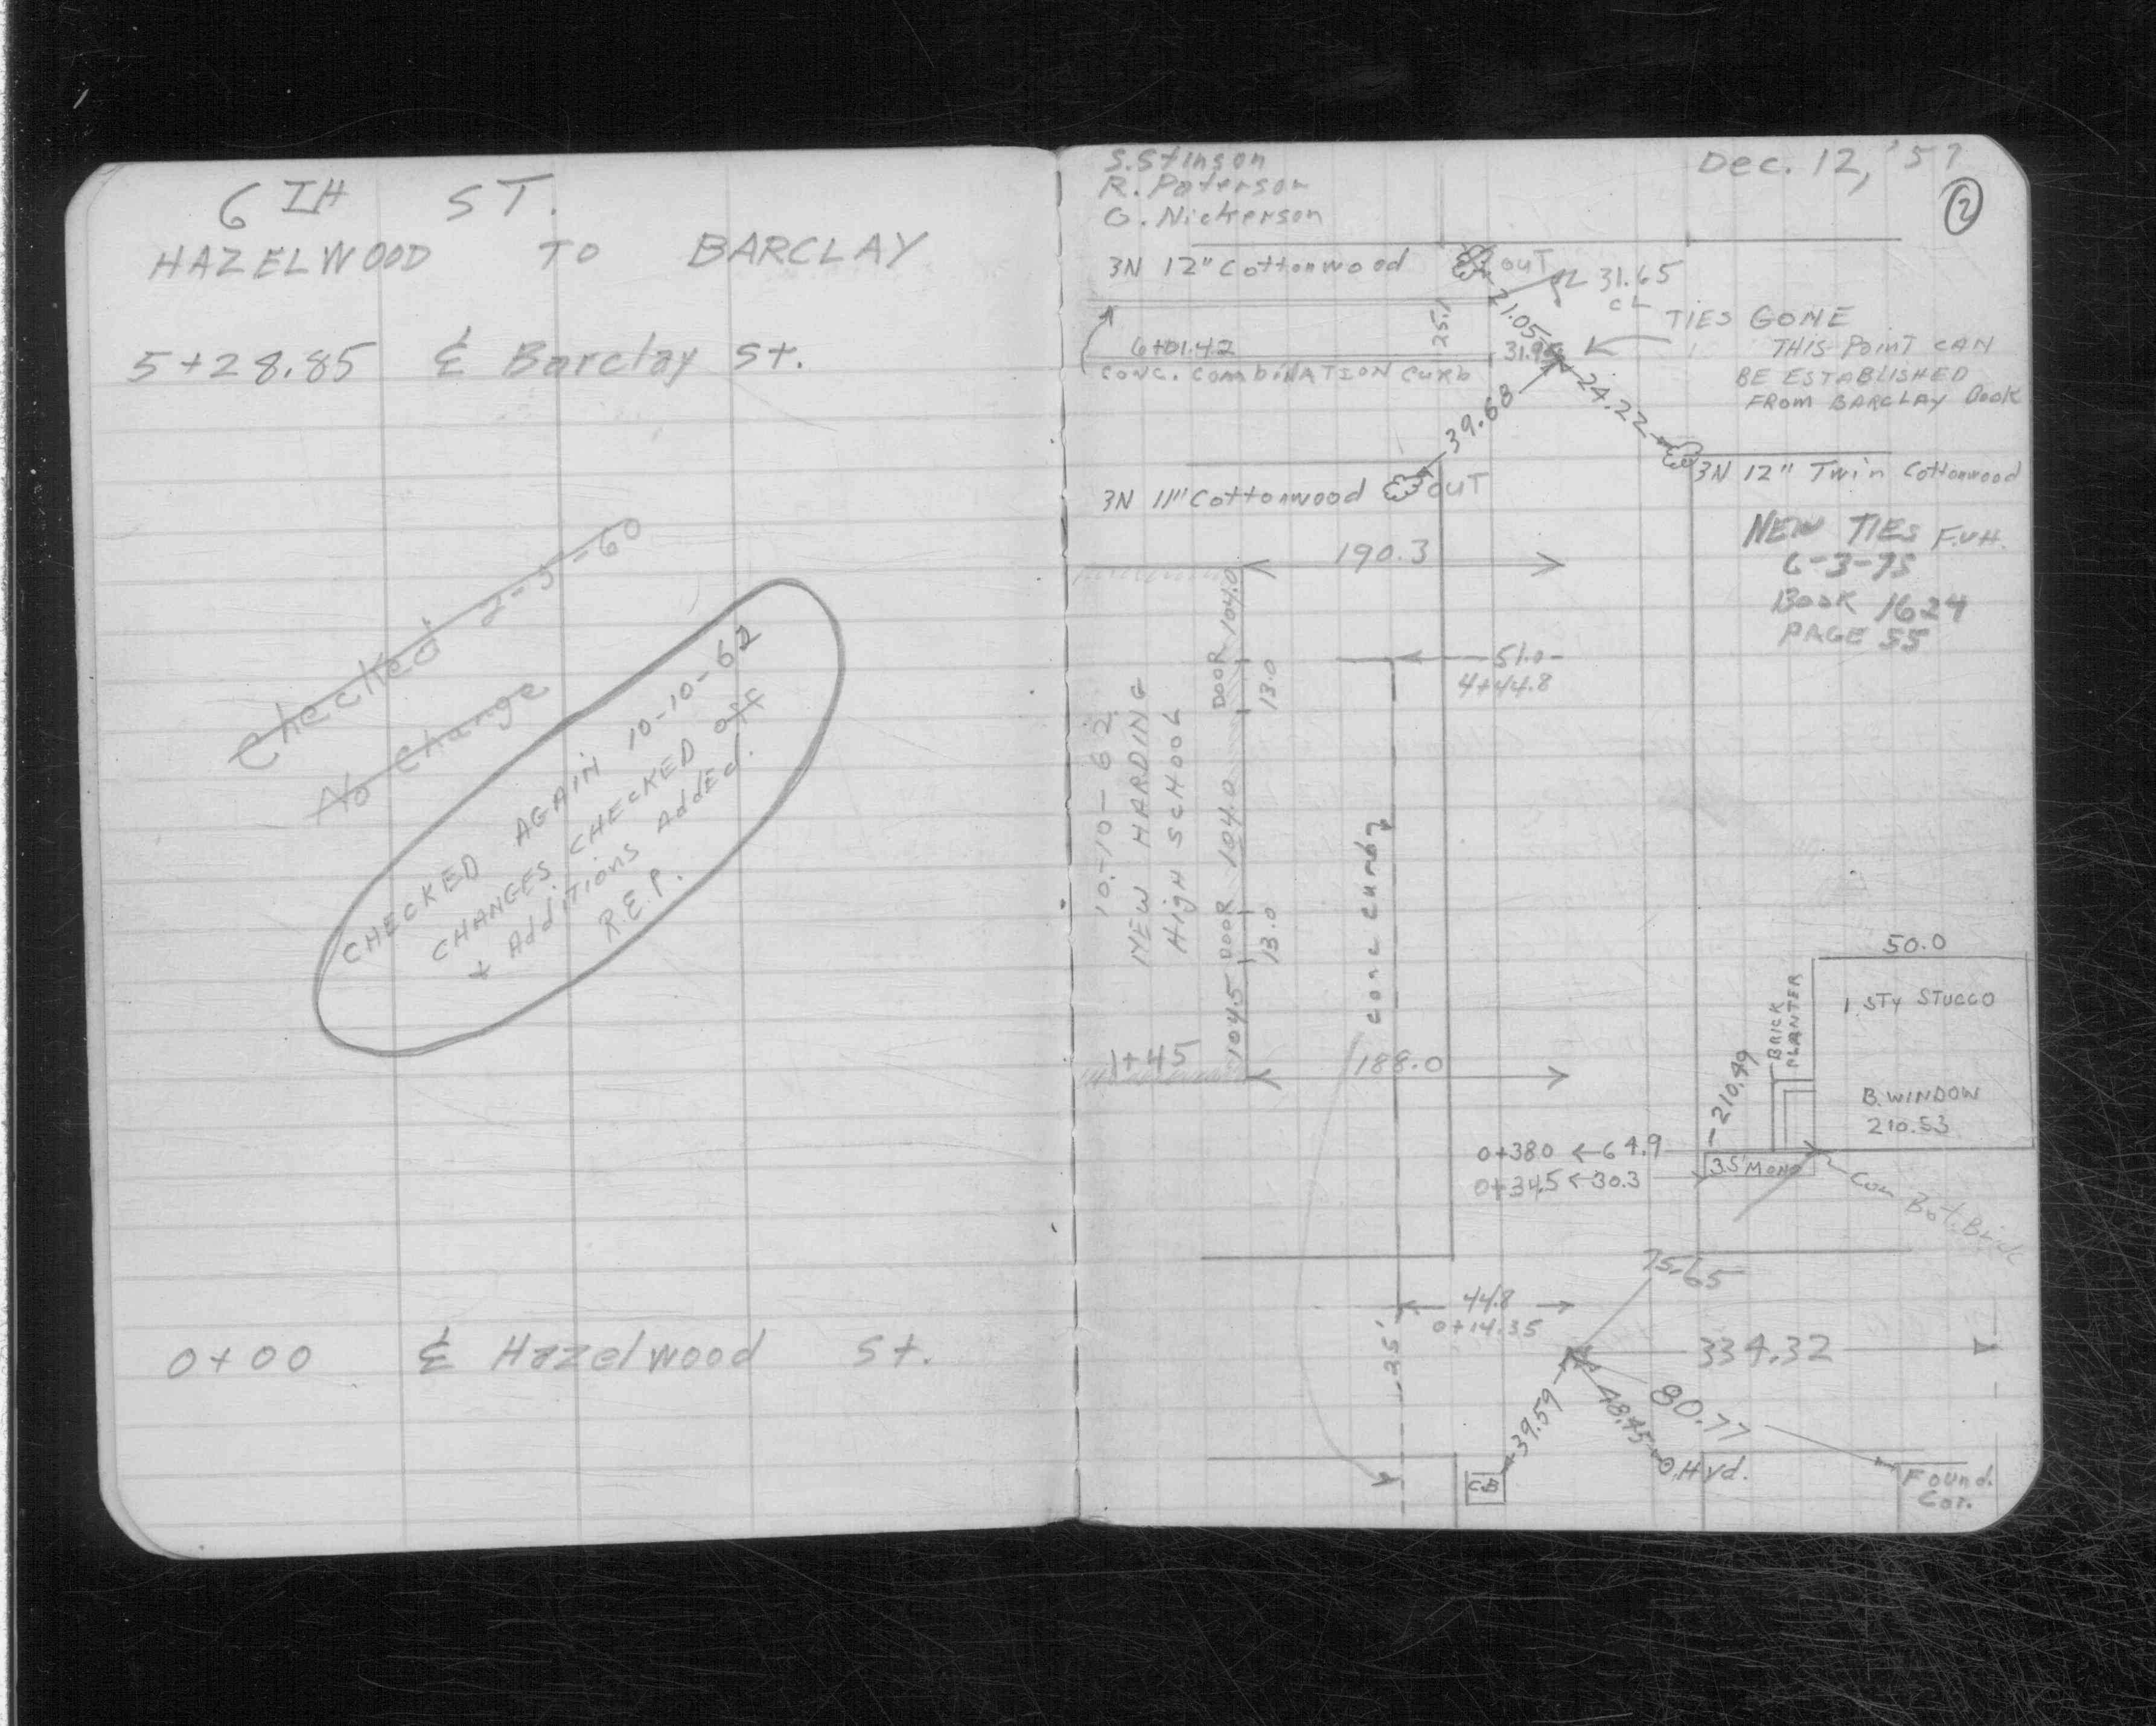 6TH ST.
HAZELWOOD TO BARCLAY
5+28.85 ℄ Barclay St.
Checked 2-5-60
No Change
CHECKED AGAIN 10-10-62
CHANGES CHECKED OFF
+ Additions Added.
R.E.P.
0+00 ℄ Hazelwood St.
S. Stinson
R. Paterson
G. Nickerson
Dec. 12, '57
2
3N 12" Cottonwood
OUT
31.65
CL
21.05
25.1
6+01.42
31.95
CONC. COMBINATION CURB
TIES GONE
THIS POINT CAN
BE ESTABLISHED
FROM BARCLAY Book
39.68
24.22
3N 11" Cottonwood
OUT
3N 12" Twin Cottonwood
NEW TIES F.V.H.
6-3-75
Book 1624
PAGE 55
190.3
104.0
DOOR
13.0
51.0
4+44.8
10-10-62
NEW HARDING
HIGH SCHOOL
104.0
DOOR
13.0
104.5
conc curb
1+45
188.0
50.0
1 STY STUCCO
BRICK
PLANTER
B. WINDOW
210.53
210.49
0+38.0 ← 64.9
0+34.5 ← 30.3
3.5' MONO
Cor. Bot. Brick
75.65
44.8
0+14.35
25'
334.32
39.59
48.45
80.77
CB
Hyd.
Found.
Cor.